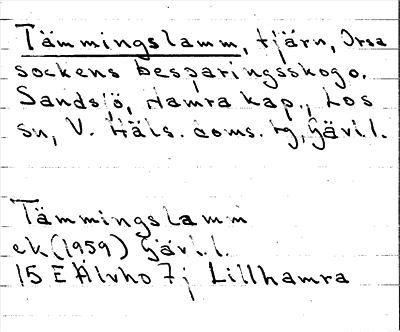 Tämmingslamm, tjärn, Orsa
sockens besparingsskog,
Sandsjö, Hamra kap., Los
sn, V. Häls. doms. tg, Gävl.l.
Tämmingslamm
ek (1959) Gävl.l.
15 E Älvho 7j Lillhamra